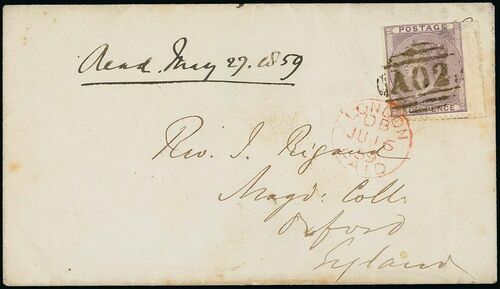 Read. May 27. 1859
POSTAGE
A02
SIX PENCE
LONDON
DB
JU 16
59
PAID
Rev. J. Rigaud
Magd: Coll.
Oxford
England